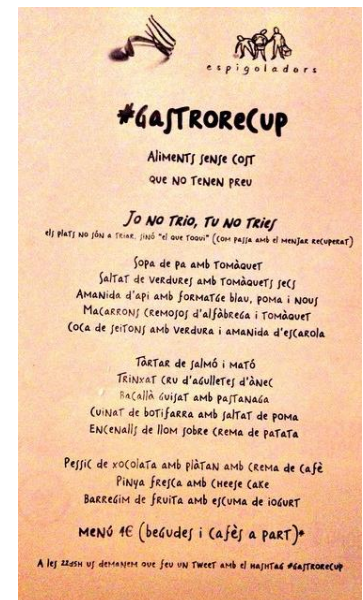 espigoladors
#GASTRORECUP
ALIMENTS SENSE COST
QUE NO TENEN PREU
JO NO TRIO, TU NO TRIES
ELS PLATS NO SÓN A TRIAR, SINÓ "EL QUE TOQUI" (COM PASSA AMB EL MENJAR RECUPERAT)
SOPA DE PA AMB TOMÀQUET
SALTAT DE VERDURES AMB TOMÀQUETS SECS
AMANIDA D'API AMB FORMATGE BLAU, POMA I NOUS
MACARRONS CREMOSOS D'ALFÀBREGA I TOMÀQUET
COCA DE SEITONS AMB VERDURA I AMANIDA D'ESCAROLA
TÀRTAR DE SALMÓ I MATÓ
TRINXAT CRU D'AGULLETES D'ÀNEC
BACALLÀ GUISAT AMB PASTANAGA
CUINAT DE BOTIFARRA AMB SALTAT DE POMA
ENCENALLS DE LLOM SOBRE CREMA DE PATATA
PESSIC DE XOCOLATA AMB PLÀTAN AMB CREMA DE CAFÈ
PINYA FRESCA AMB CHEESE CAKE
BARREGIM DE FRUITA AMB ESCUMA DE IOGURT
MENÚ 1€ (BEGUDES I CAFÈS A PART)*
A LES 22:15H US DEMANEM QUE FEU UN TWEET AMB EL HASHTAG #GASTRORECUP